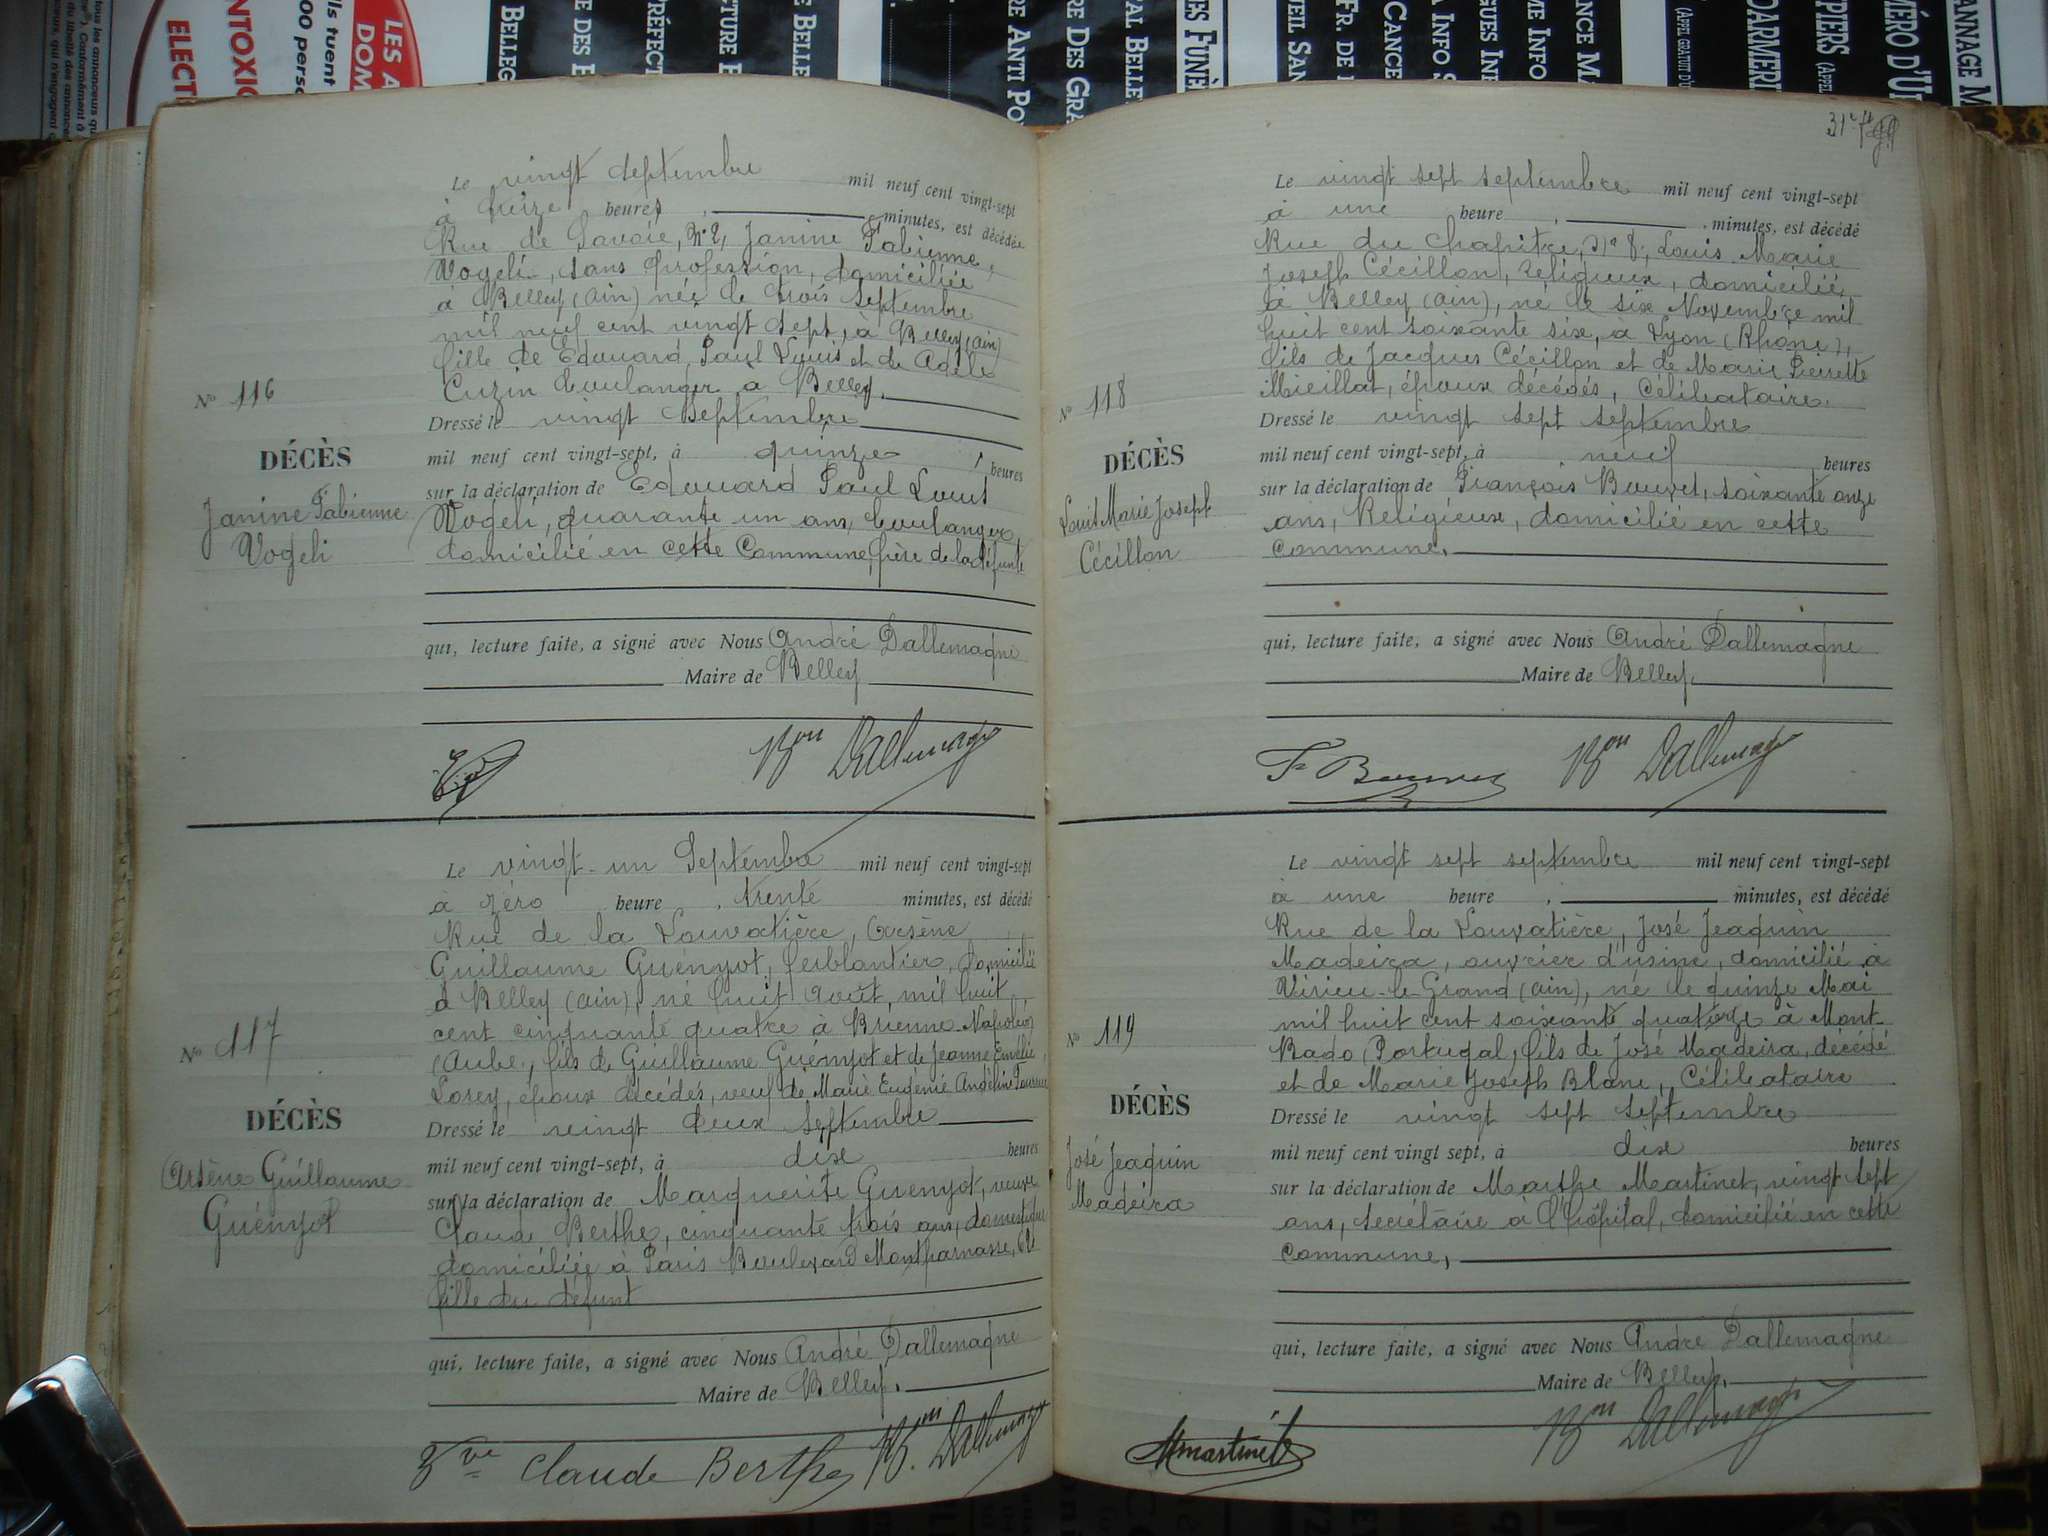 Le vingt septembre mil neuf cent vingt-sept
à treize heures, minutes, est décédée
Rue de Savoie, N° 2, Janine Fabienne,
Vogeli, sans profession, domiciliée
à Belley (Ain) née le trois septembre
mil neuf cent vingt sept, à Belley (Ain)
fille de Edouard, Paul Louis et de Adèle
Cuzin boulanger à Belley.
Dressé le vingt Septembre
mil neuf cent vingt-sept, à quinze heures
sur la déclaration de Edouard Paul Louis
Vogeli, quarante un ans, boulanger,
domicilié en cette Commune, père de la défunte
qui, lecture faite, a signé avec Nous André Dallemagne
Maire de Belley
Bon Dallemagne
No 116
DÉCÈS
Janine Fabienne
Vogeli
Le vingt-un Septembre mil neuf cent vingt-sept
à zéro heure, trente minutes, est décédé
Rue de la Louvatière, Arsène
Guillaume Guényot, ferblantier, domicilié
à Belley (Ain), né huit Août, mil huit
cent cinquante quatre à Brienne Napoléon
(Aube, fils de Guillaume Guényot et de Jeanne Emélie
Losey, époux décédés, veuf de Marie Eugénie Angéline
Dressé le vingt deux septembre
mil neuf cent vingt-sept, à dix heures
sur la déclaration de Marguerite Guenyot, veuve
Claud Berthe, cinquante trois ans, domestique
domiciliée à Paris Boulevard Montparnasse, 62
fille du défunt
qui, lecture faite, a signé avec Nous André Dallemagne
Maire de Belley.
Vve Claude Berthe Bon Dallemagne
No 117
DÉCÈS
Arsène Guillaume
Guényot
31e
Le vingt sept septembre mil neuf cent vingt-sept
à une heure, minutes, est décédé
Rue du Chapitre, N° 8, Louis Marie
Joseph Cécillon, religieux, domicilié
à Belley (Ain), né le six Novembre mil
huit cent soixante six, à Lyon (Rhône),
fils de Jacques Cécillon et de Marie Pierrette
Mieillat, époux décédés, Célibataire.
Dressé le vingt sept septembre
mil neuf cent vingt-sept, à neuf heures
sur la déclaration de François Bouvet, soixante onze
ans, Religieux, domicilié en cette
commune.
qui, lecture faite, a signé avec Nous André Dallemagne
Maire de Belley.
Bon Dallemagne
No 118
DÉCÈS
Louis Marie Joseph
Cécillon
Le vingt sept septembre mil neuf cent vingt-sept
à une heure, minutes, est décédé
Rue de la Louvatière, José Jeaquin
Madeira, ouvrier d'usine, domicilié à
Virieu-le-Grand (Ain), né le quinze Mai
mil huit cent soixante quatorze à Mont-
Rado (Portugal, fils de José Madeira, décédé
et de Marie Joseph Blanc, Célibataire
Dressé le vingt sept septembre
mil neuf cent vingt sept, à dix heures
sur la déclaration de Marthe Martinet, vingt sept
ans, secrétaire à l'hôpital, domicilié en cette
commune,
qui, lecture faite, a signé avec Nous André Dallemagne
Maire de Belley.
Bon Dallemagne
No 119
DÉCÈS
José Jeaquin
Madeira